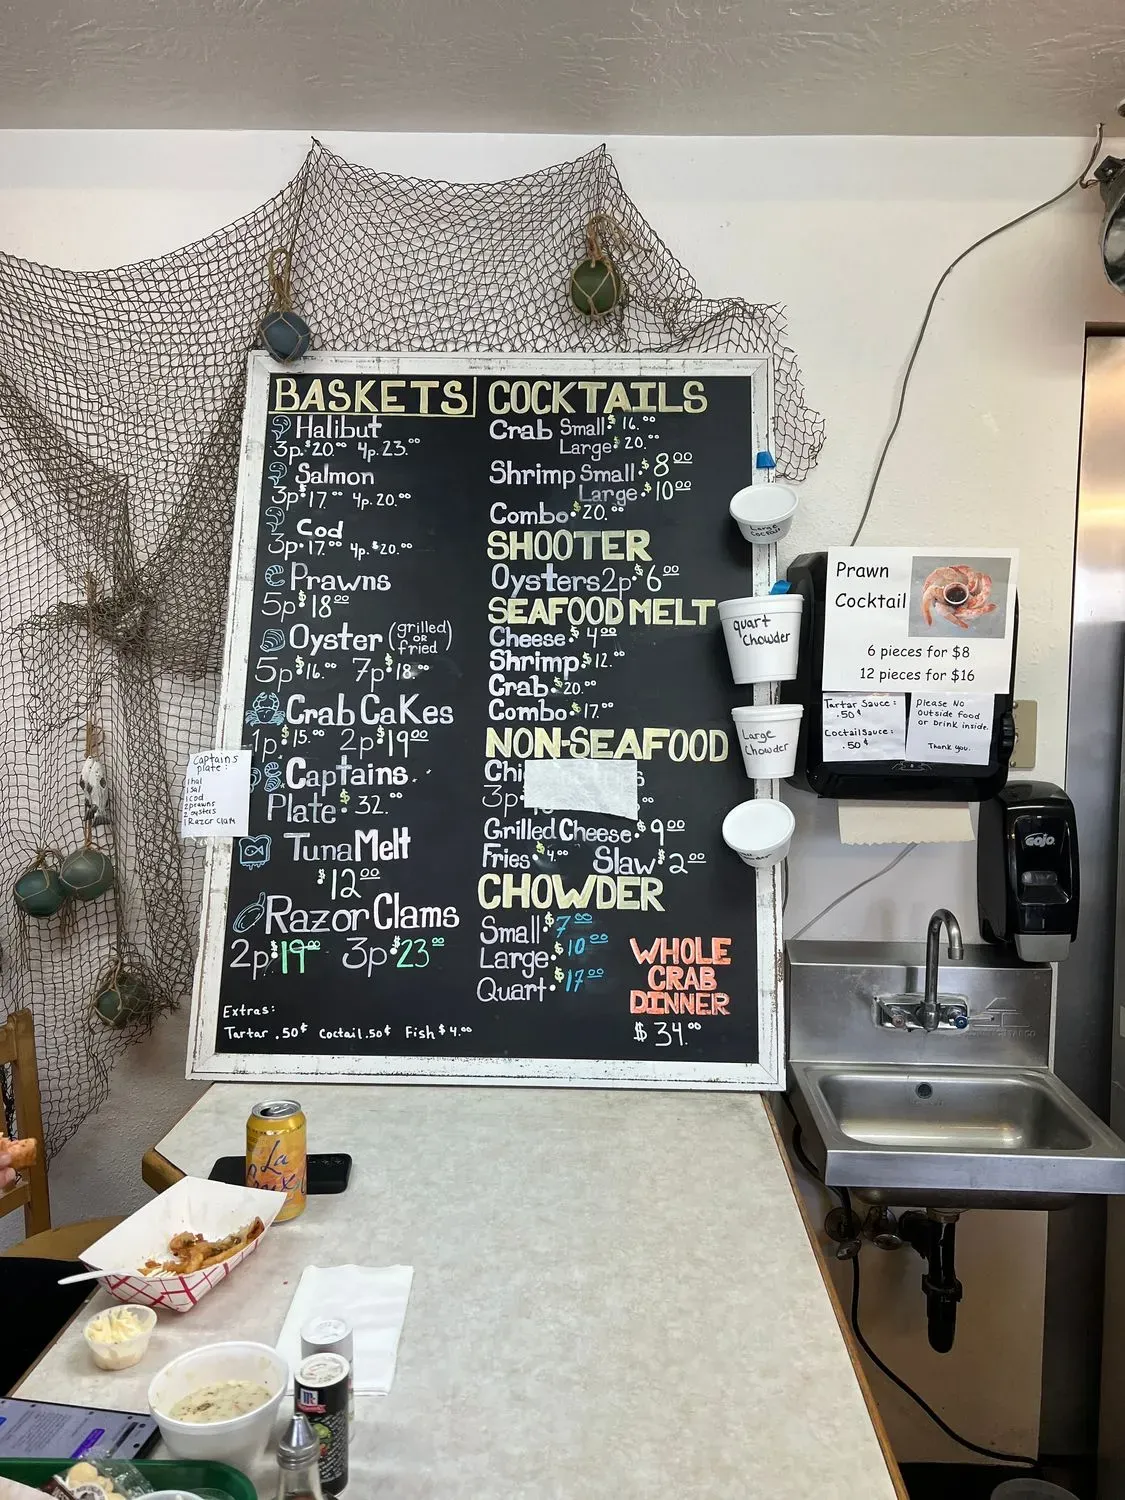 BASKETS
Halibut
3p. $20.00 4p. 23.00
Salmon
3p $17.00 4p. 20.00
Cod
3p. 17.00 4p. $20.00
Prawns
5p $18.00
Oyster (grilled or fried)
5p $16.00 7p $18.00
Crab Cakes
1p. $15.00 2p. $19.00
Captains
Plate. $32.00
Tuna Melt
$12.00
Razor Clams
2p. $19.00 3p. $23.00
Extras:
Tartar .50¢ Coctail .50¢ Fish $4.00
COCKTAILS
Crab Small. $16.00
Large. $20.00
Shrimp Small. $8.00
Large. $10.00
Combo. $20.00
SHOOTER
Oysters 2p. $6.00
SEAFOOD MELT
Cheese. $4.00
Shrimp. $12.00
Crab. $20.00
Combo. $17.00
NON-SEAFOOD
Chi
3p.
Grilled Cheese. $9.00
Fries. $4.00 Slaw. $2.00
CHOWDER
Small. $7.00
Large. $10.00
Quart. $17.00
WHOLE
CRAB
DINNER
$34.00
Captains
plate:
1 hal
1 sal
1 cod
2 prawns
2 oysters
1 Razor clam
Large
Coctail
quart
Chowder
Large
Chowder
Prawn
Cocktail
6 pieces for $8
12 pieces for $16
Tartar Sauce:
.50¢
Coctail Sauce:
.50¢
please No
outside food
or Drink inside.
Thank you.
GOJO
La